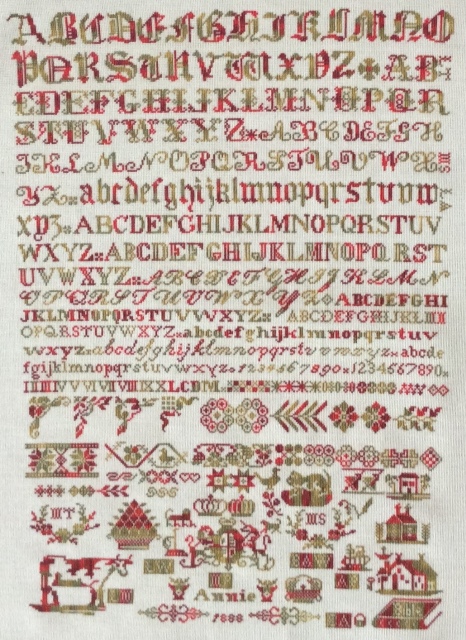 ABCDEFGHIJKLMNO
PQRSTUVWXYZ AB
CDEFGHIJKLMNOPQR
STUVWXYZ ABCDEFGH
IJKLMNOPQRSTUVWX
YZ abcdefghijklmnopqrstuvw
xyz ABCDEFGHIJKLMNOPQRSTUV
WXYZ ABCDEFGHIJKLMNOPQRST
UVWXYZ ABCDEFGHIJKLMN
OPQRSTUVWXYZ ABCDEFGHI
JKLMNOPQRSTUVWXYZ ABCDEFGHIJKLMN
OPQRSTUVWXYZ abcdefghijklmnopqrstuv
wxyz abcdefghijklmnopqrstuvwxyz abcde
fghijklmnopqrstuvwxyz 1234567890 1234567890
MT
MS
Annie
Bible
1888